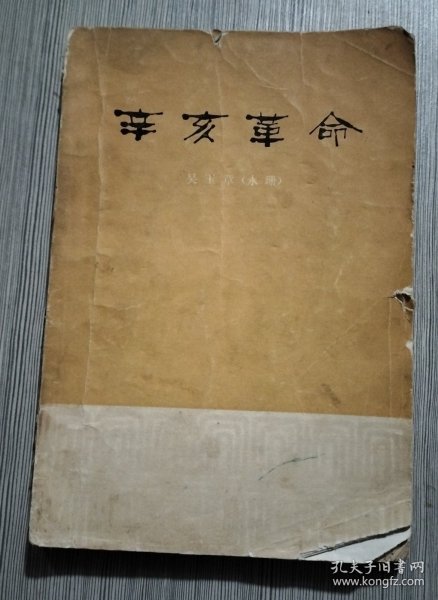 辛亥革命
吴玉章（永珊）
孔夫子旧书网
www.kongfz.com